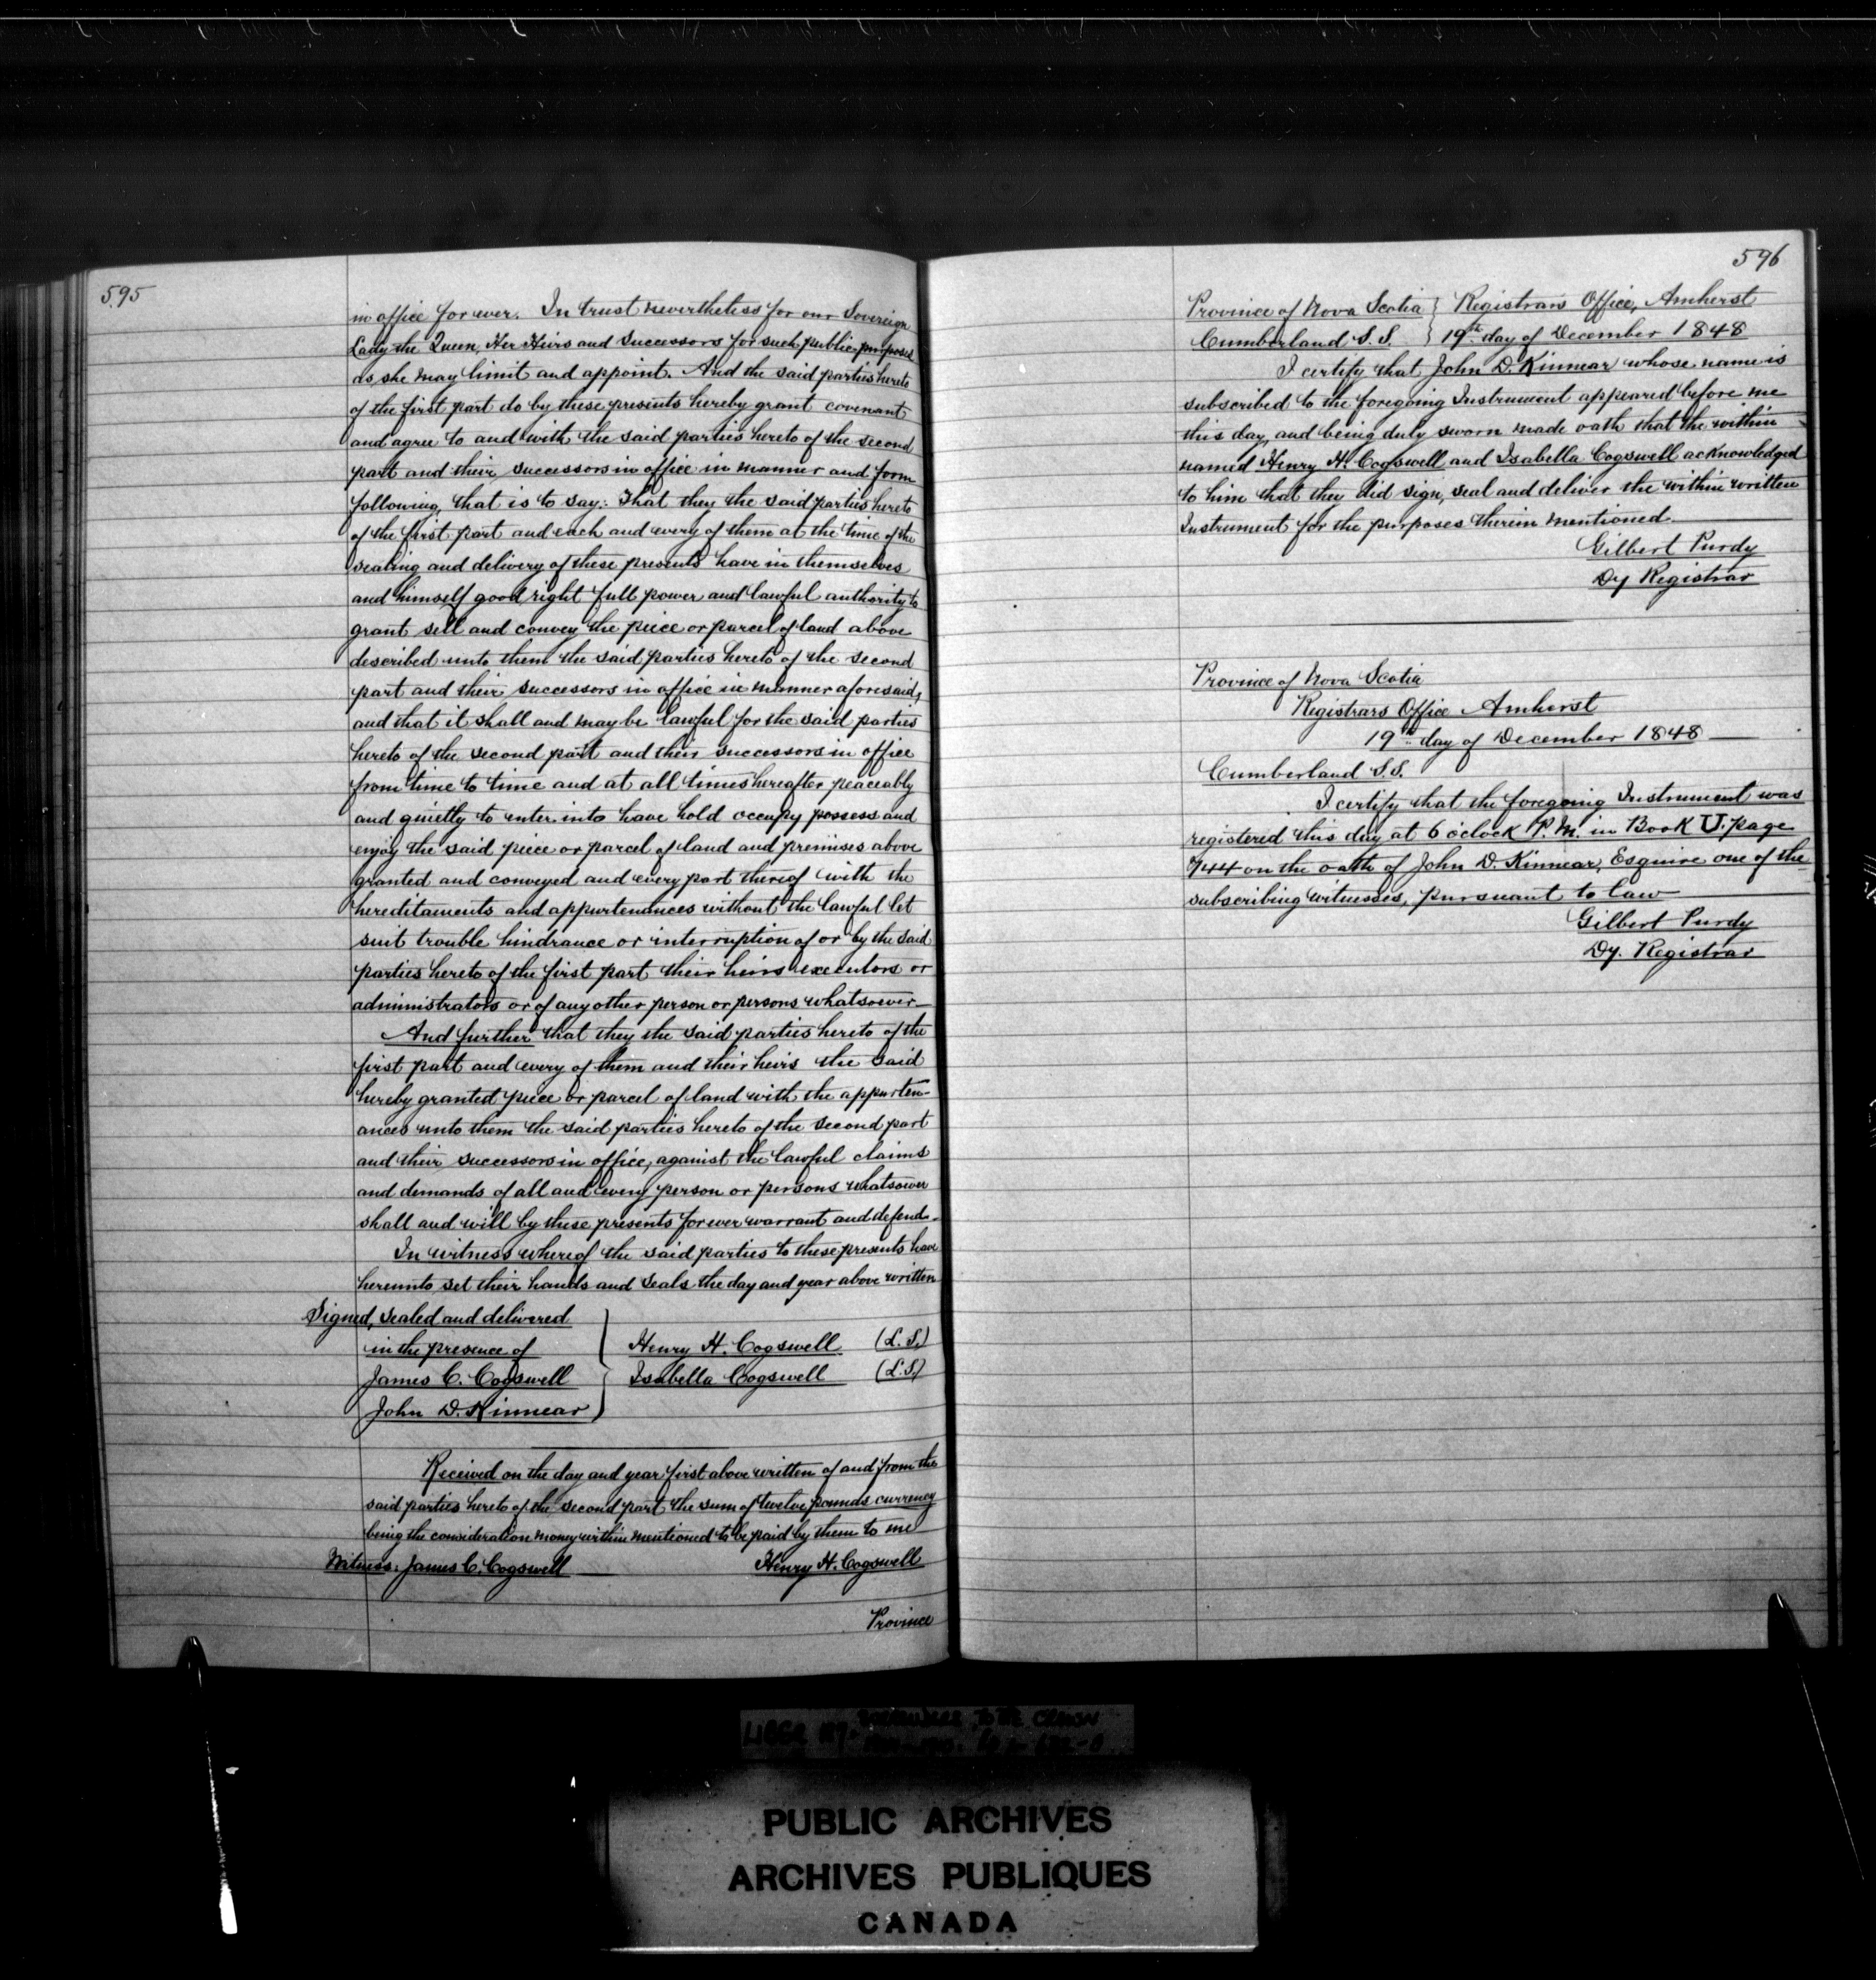 595
in office for ever. In trust nevertheless for our Sovereign
Lady the Queen, Her Heirs and Successors for such public purposes
as she may limit and appoint. And the said parties hereto
of the first part do by these presents hereby grant covenant
and agree to and with the said parties hereto of the second
part and their successors in office in manner and form
following, that is to say: That they the said parties hereto
of the first part and each and every of them at the time of the
sealing and delivery of these presents have in themselves
and himself good right full power and lawful authority to
grant sell and convey the piece or parcel of land above
described unto them the said parties hereto of the second
part and their successors in office in manner aforesaid,
and that it shall and may be lawful for the said parties
hereto of the second part and their successors in office
from time to time and at all times hereafter peaceably
and quietly to enter into have hold occupy possess and
enjoy the said piece or parcel of land and premises above
granted and conveyed and every part thereof with the
hereditaments and appurtenances without the lawful let
suit trouble hindrance or interruption of or by the said
parties hereto of the first part their heirs executors or
administrators or of any other person or persons whatsoever
And further that they the said parties hereto of the
first part and every of them and their heirs the said
hereby granted piece or parcel of land with the appurten-
ances unto them the said parties hereto of the second part
and their successors in office, against the lawful claims
and demands of all and every person or persons whatsoever
shall and will by these presents for ever warrant and defend.
In witness whereof the said parties to these presents have
hereunto set their hands and seals the day and year above written
Signed, sealed and delivered
in the presence of
James C. Cogswell
John D. Kinnear
Henry H. Cogswell (L.S.)
Isabella Cogswell (L.S)
Received on the day and year first above written of and from the
said parties hereto of the second part the sum of twelve pounds currency
being the consideration money within mentioned to be paid by them to me
Witness. James C. Cogswell Henry H. Cogswell
Province
596
Province of Nova Scotia } Registrars Office, Amherst
Cumberland S.S. } 19th day of December 1848
I certify that John D. Kinnear whose name is
subscribed to the foregoing Instrument appeared before me
this day, and being duly sworn made oath that the within
named Henry H. Cogswell and Isabella Cogswell acknowledged
to him that they did sign, seal and deliver the within written
Instrument for the purposes therein mentioned
Gilbert Purdy
Dy Registrar
Province of Nova Scotia
Registrars Office Amherst
19th day of December 1848
Cumberland S.S.
I certify that the foregoing Instrument was
registered this day at 6 oclock P.M. in Book U. page
744 on the oath of John D. Kinnear, Esquire one of the
subscribing witnesses, pursuant to law
Gilbert Purdy
Dy. Registrar
PUBLIC ARCHIVES
ARCHIVES PUBLIQUES
CANADA